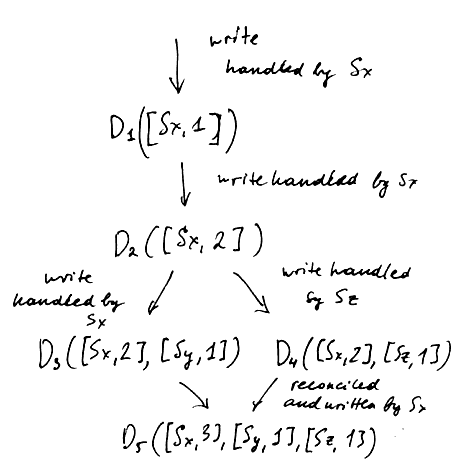 write
handled by Sx
D1([Sx,1])
write handled by Sx
D2([Sx,2])
write
handled by
Sx
write handled
by Sz
D3([Sx,2],[Sy,1]) D4([Sx,2],[Sz,1])
reconciled
and written by Sx
D5([Sx,3],[Sy,1],[Sz,1])